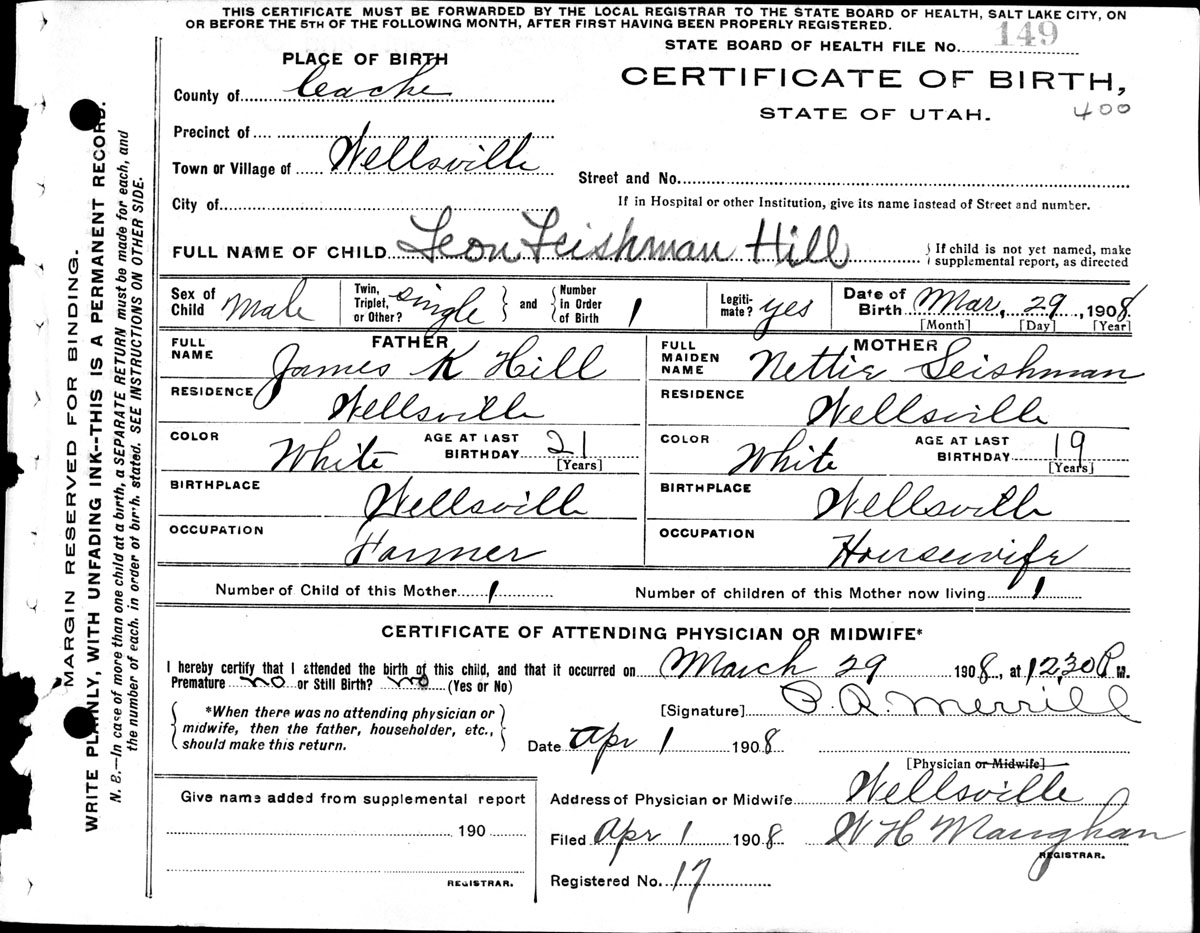 THIS CERTIFICATE MUST BE FORWARDED BY THE LOCAL REGISTRAR TO THE STATE BOARD OF HEALTH, SALT LAKE CITY, ON
OR BEFORE THE 5TH OF THE FOLLOWING MONTH, AFTER FIRST HAVING BEEN PROPERLY REGISTERED.
STATE BOARD OF HEALTH FILE No. 149
PLACE OF BIRTH
CERTIFICATE OF BIRTH,
STATE OF UTAH.
400
County of Ceache
Precinct of
Town or Village of Wellsville
Street and No.
City of
If in Hospital or other Institution, give its name instead of Street and number.
FULL NAME OF CHILD Leon Leishman Hill
If child is not yet named, make
supplemental report, as directed
Sex of Child Male
Twin, Triplet, or Other? single and Number in Order of Birth 1
Legiti- mate? yes
Date of Birth Mar, 29, 1908
[Month] [Day] [Year]
FATHER
FULL NAME James K Hill
RESIDENCE Wellsville
COLOR White AGE AT LAST BIRTHDAY 21
[Years]
BIRTHPLACE Wellsville
OCCUPATION Farmer
MOTHER
FULL MAIDEN NAME Nettie Leishman
RESIDENCE Wellsville
COLOR White AGE AT LAST BIRTHDAY 19
[Years]
BIRTHPLACE Wellsville
OCCUPATION Housewife
Number of Child of this Mother 1 Number of children of this Mother now living 1
CERTIFICATE OF ATTENDING PHYSICIAN OR MIDWIFE*
I hereby certify that I attended the birth of this child, and that it occurred on March 29 1908, at 12,30 P M.
Premature no or Still Birth? no (Yes or No)
[Signature] P. R. Merrill
*When there was no attending physician or
midwife, then the father, householder, etc.,
should make this return.
Date Apr 1 1908
[Physician or Midwife]
Give name added from supplemental report
190
REGISTRAR.
Address of Physician or Midwife Wellsville
Filed Apr 1 1908 W H Maughan
REGISTRAR.
Registered No. 17
MARGIN RESERVED FOR BINDING.
WRITE PLAINLY, WITH UNFADING INK--THIS IS A PERMANENT RECORD.
N. B.—In case of more than one child at a birth, a SEPARATE RETURN must be made for each, and
the number of each, in order of birth, stated. SEE INSTRUCTIONS ON OTHER SIDE.